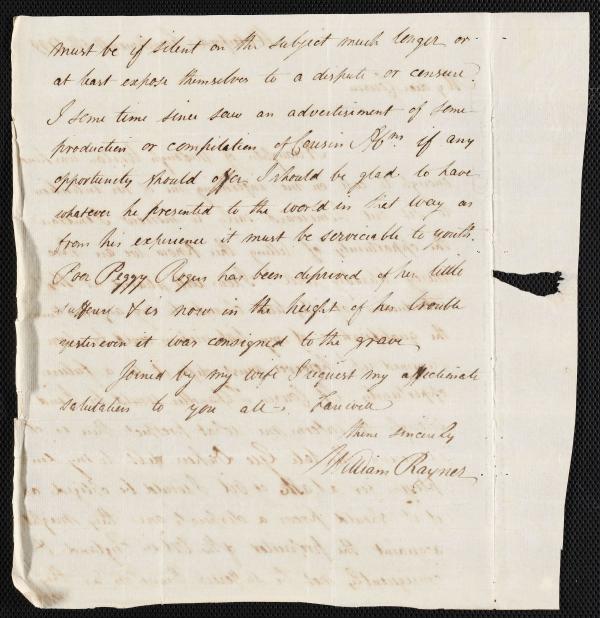 must be if silent on the subject much longer or
at least expose themselves to a dispute or censure.
I some time since saw an advertisement of some
production or compilation of Cousin if any
opportunity should offer, I should be glad to have
whatever he presented to the world in that way as
from his experience it must be serviceable to youth.
Poor Peggy Rogers has been deprived of her little
sufferer & is now in the height of her trouble
yestereven it was consigned to the grave
Joined by my wife I request my affectionate
salutation to you all. Farewell
thine sincerely
William Rayner